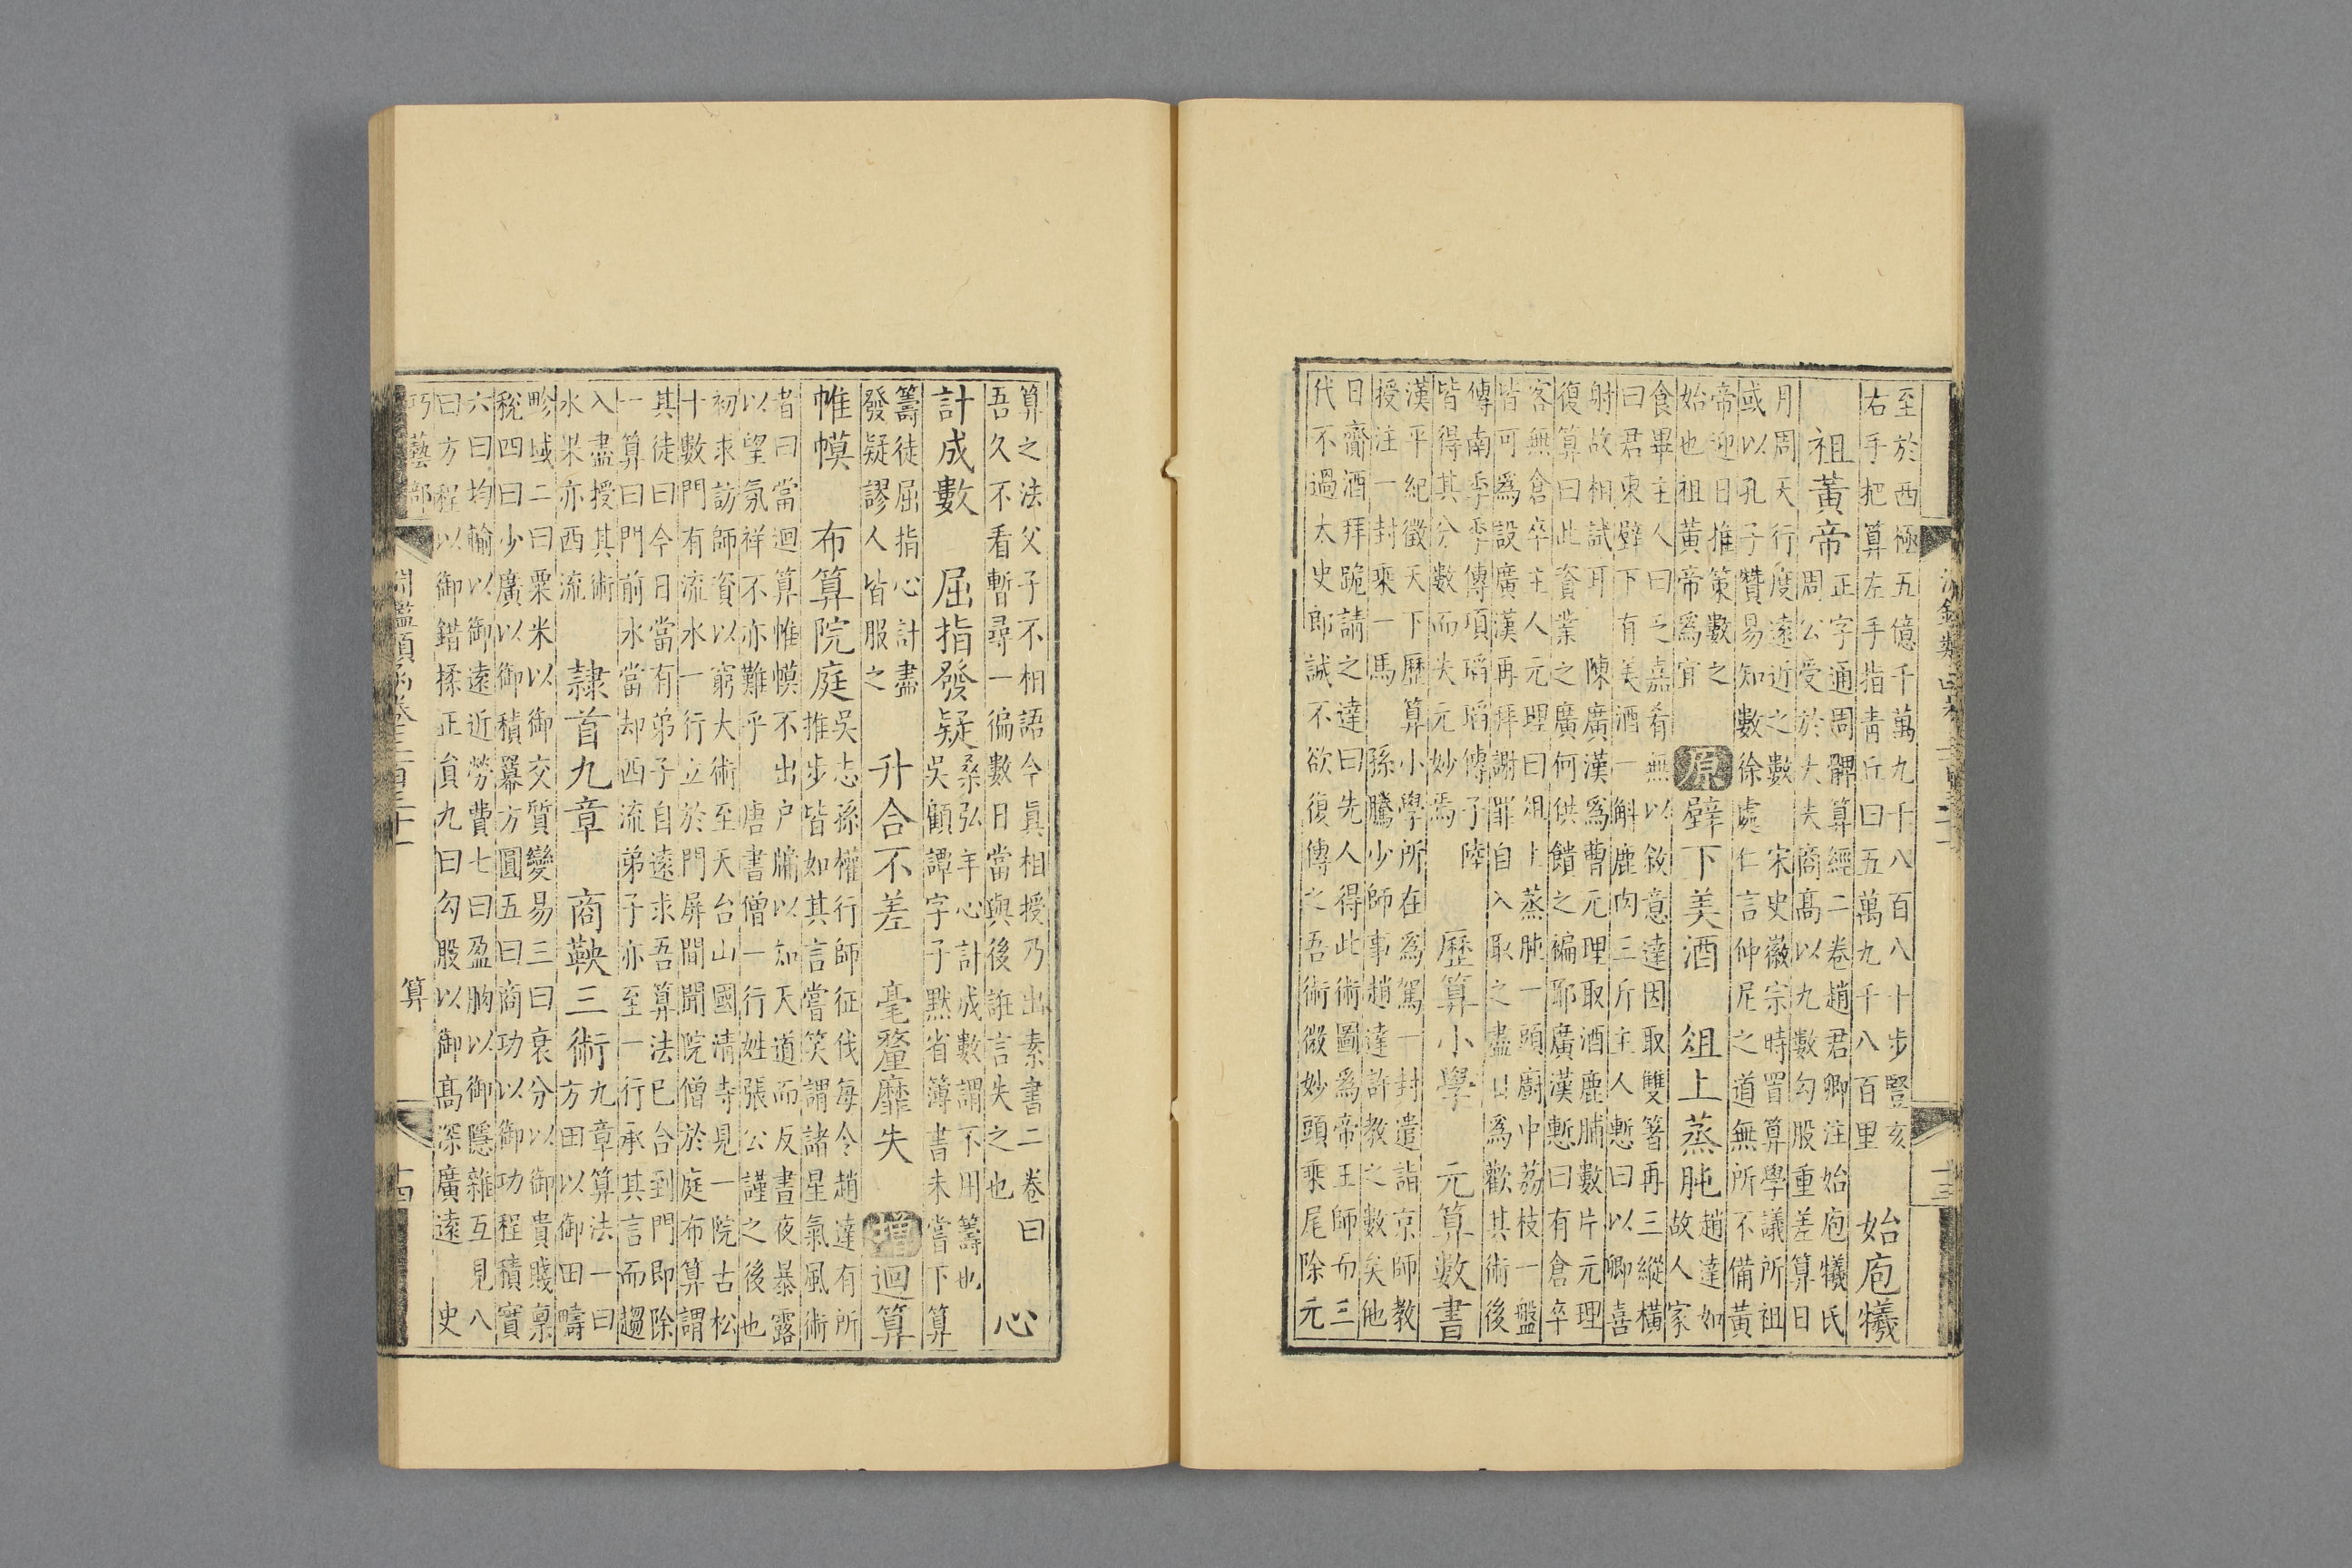 至於西極五億千萬九千八百八十步豎亥
右手把算左手指青丘曰五萬九千八百里
始庖犧
祖黃帝
正字通周髀算經二卷趙君卿注始庖犧氏
周公受於大夫商高以九數勾股重差算日
月周天行度遠近之數　宋史徽宗時置算學議所祖
或以孔子贊易知數徐處仁言仲尼之道無所不備黃
帝迎日推策數之
始也祖黃帝爲宜
原　壁下美酒　俎上蒸肫
趙達如
故人家
食畢主人曰乏嘉肴無以敘意達因取雙箸再三縱橫
曰君東壁下有美酒一斛鹿肉三斤主人慙曰以卿喜
射故相試耳　陳廣漢爲曹元理取酒鹿脯數片元理
復算曰此資業之廣何供饋之褊耶廣漢慙曰有倉卒
客無倉卒主人元理曰俎上蒸肫一頭廚中荔枝一盤
皆可爲設廣漢再拜謝罪自入取之盡日爲歡其術後
傳南季季傳項瑫瑫傳子陸
皆得其分數而失元妙焉
歷算小學　元算數書
漢平紀徵天下歷算小學所在爲駕一封遣詣京師教
授注一封乘一馬　孫騰少師事趙達許教之數矣他
日齎酒拜跪請之達曰先人得此術圖爲帝王師而三
代不過太史郎誠不欲復傳之吾術微妙頭乘尾除元
十三
算之法父子不相語今眞相授乃出素書二卷曰
吾久不看暫尋一徧數日當與後誑言失之也
心
計成數　屈指發疑
桑弘羊心計成數謂不用籌也
吳顧譚字子默省簿書未嘗下算
籌徒屈指心計盡
發疑謬人皆服之
升合不差　毫釐靡失　增　迴算
帷幙　布算院庭
吳志孫權行師征伐每令趙達有所
推步皆如其言嘗笑謂諸星氣風術
者曰當迴算帷幙不出戶牖以知天道而反晝夜暴露
以望氛祥不亦難乎　唐書僧一行姓張公謹之後也
初求訪師資以窮大術至天台山國清寺見一院古松
十數門有流水一行立於門屏間聞院僧於庭布算謂
其徒曰今日當有弟子自遠求吾算法已合到門即除
一算曰門前水當却西流弟子亦至一行承其言而趨
入盡授其術
水果亦西流
隸首九章　商鞅三術
九章算法一曰
方田以御田疇
畛域二曰粟米以御交質變易三曰衰分以御貴賤稟
稅四曰少廣以御積羃方圓五曰商功以御功程積實
六曰均輸以御遠近勞費七曰盈朒以御隱雜互見八
曰方程以御錯揉正負九曰勾股以御高深廣遠　史
巧藝部　淵鑑類函卷三百三十一　算　十四